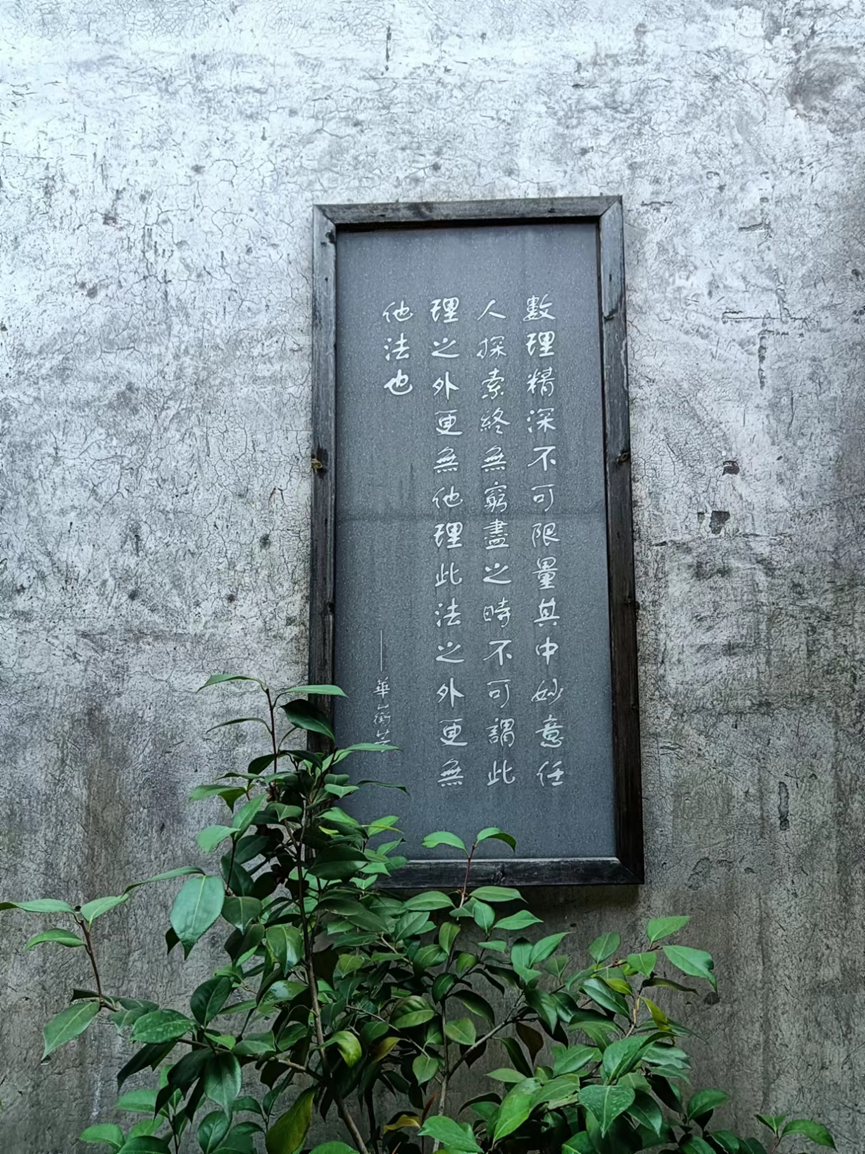 數理精深不可限量其中妙意任
人探索終無窮盡之時不可謂此
理之外更無他理此法之外更無
他法也
——華蘅芳